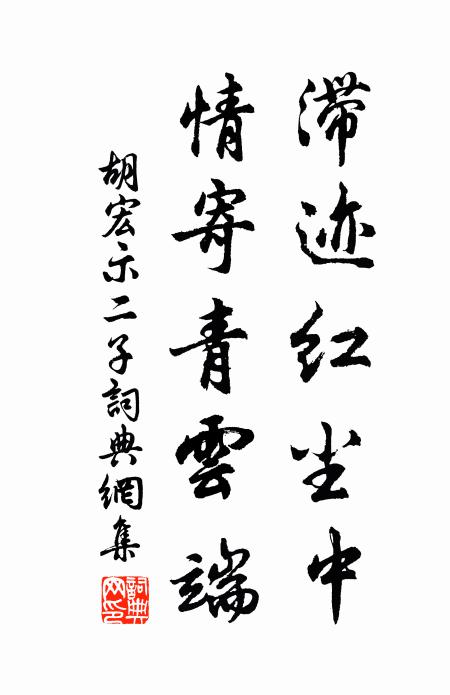 滞迹红尘中
情寄青雲端
胡宏示二子詞典網集
詞典网印